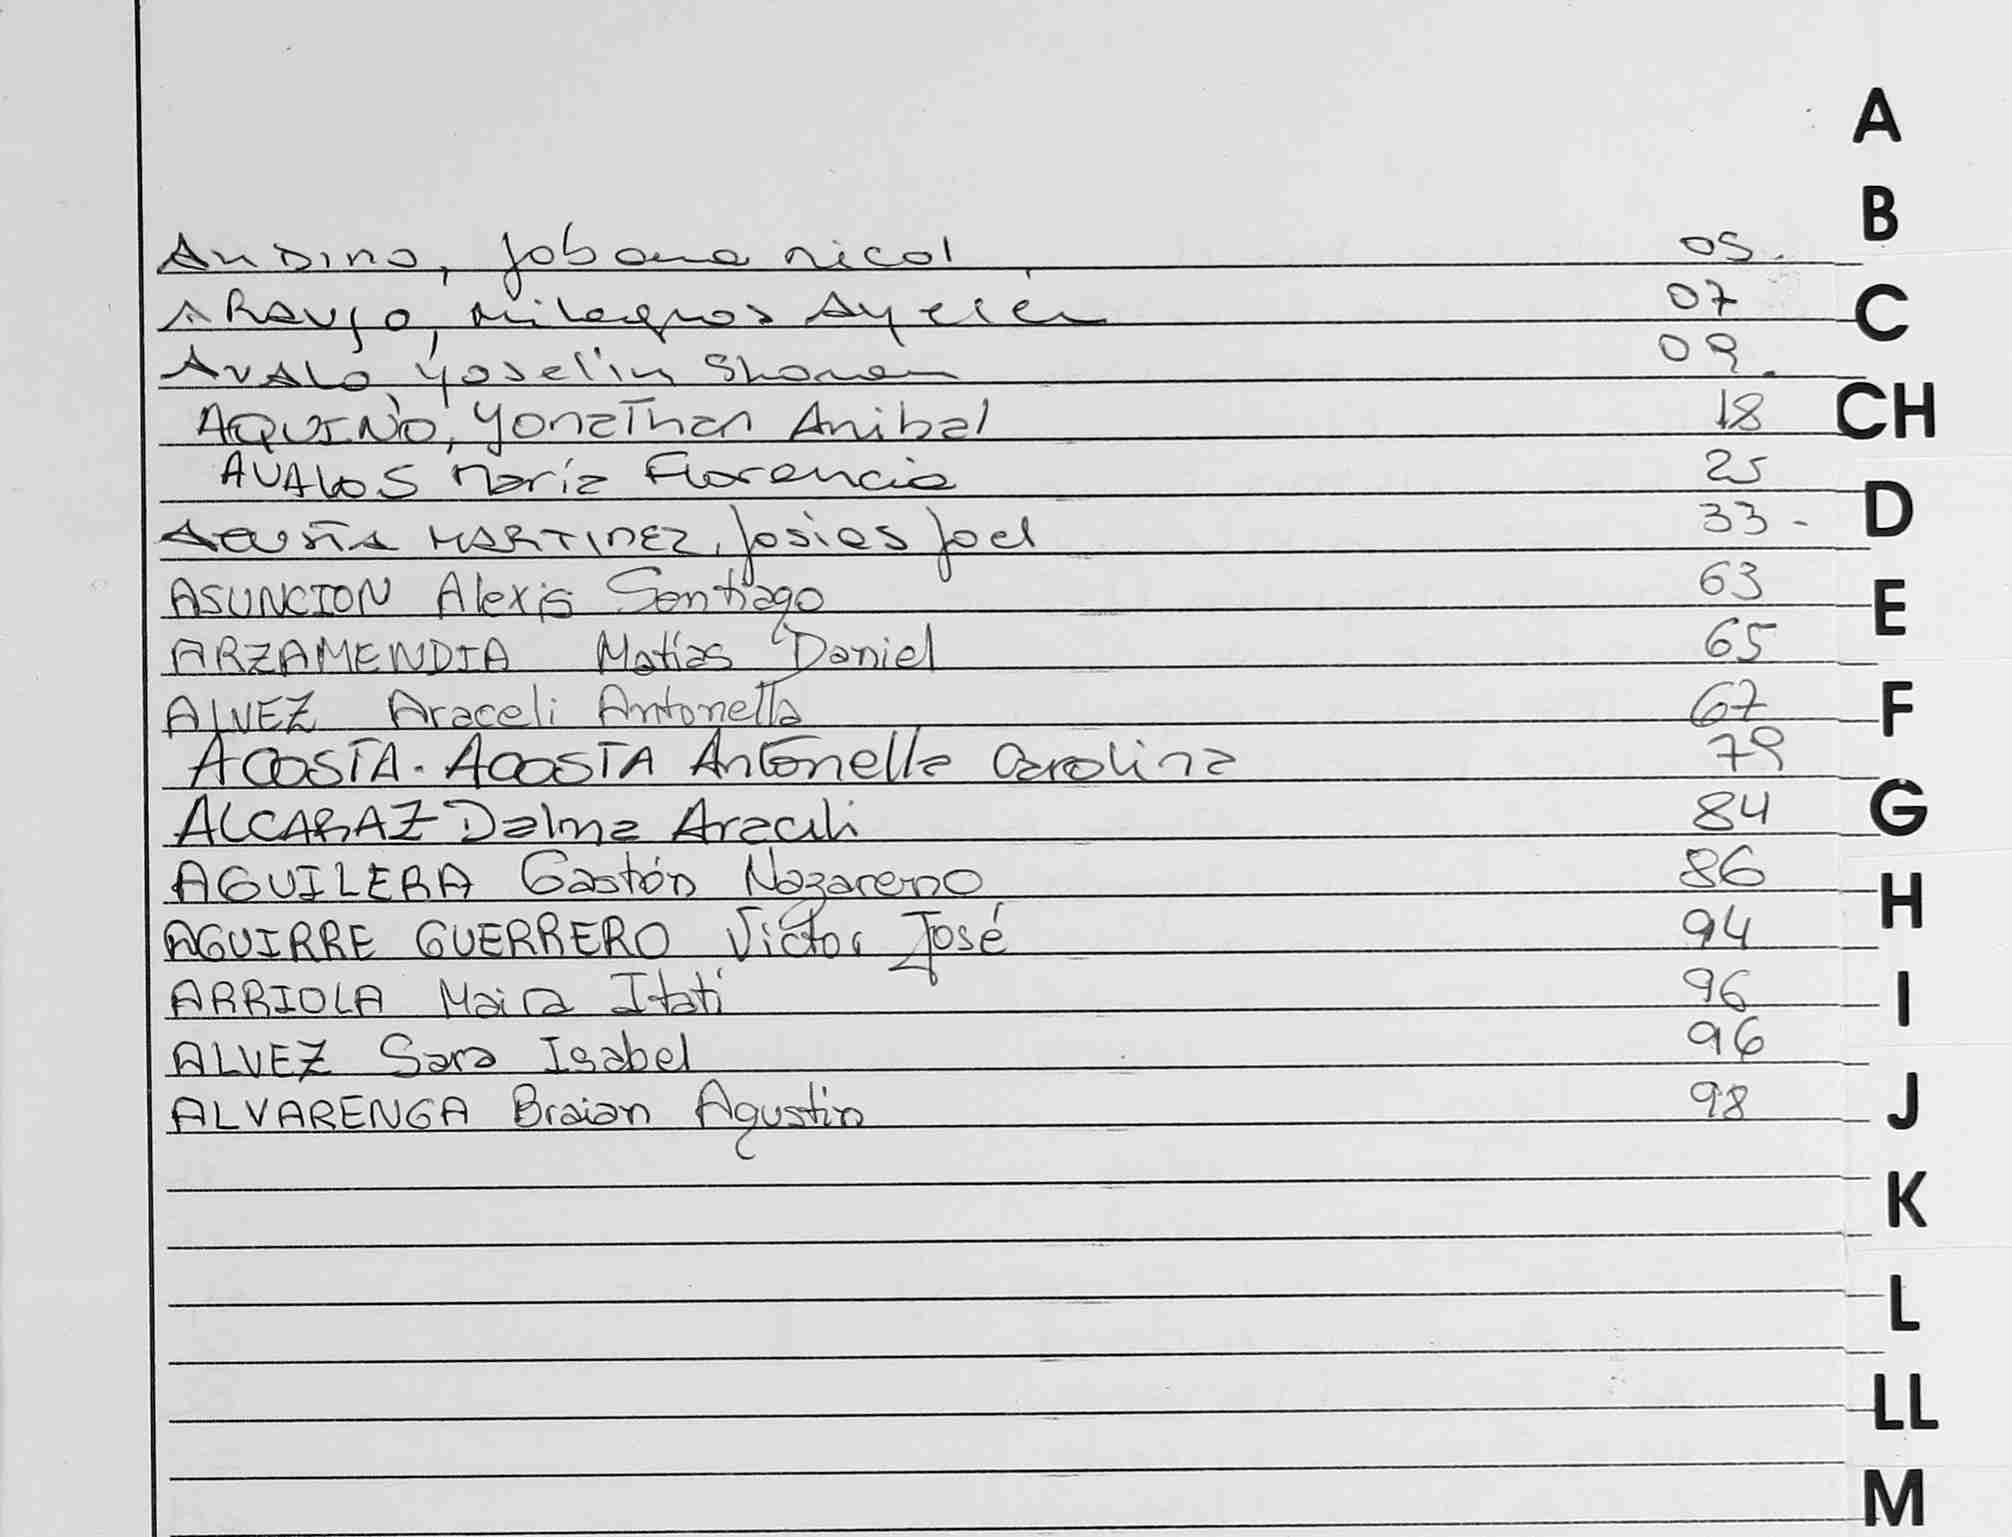 Andino, Jobana nicol 05.
Araujo, Milagros Ayelén 07
Avalo, Yoselin Sharon 09.
AQUINO, Yonathan Anibal 18
AVALOS María Florencia 25
ACUÑA MARTINEZ, Josias Joel 33-
ASUNCION Alexis Santiago 63
ARZAMENDIA Matías Daniel 65
ALVEZ Araceli Antonella 67
ACOSTA. ACOSTA Antonella Carolina 79
ALCARAZ Dalma Araceli 84
AGUILERA Gastón Nazareno 86
AGUIRRE GUERRERO Victor José 94
ARRIOLA Maira Itatí 96
ALVEZ Sara Isabel 96
ALVARENGA Braian Agustin 98
A
B
C
CH
D
E
F
G
H
I
J
K
L
LL
M